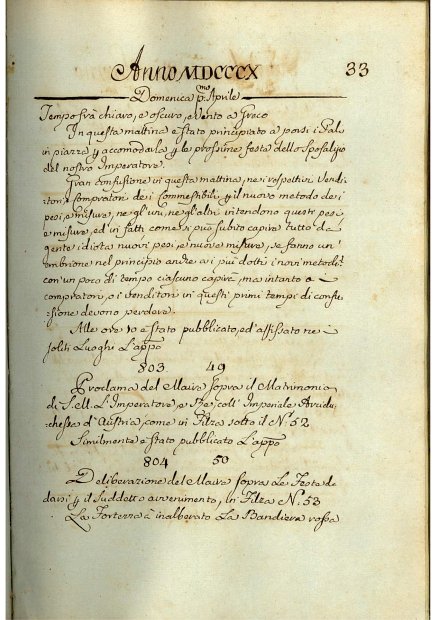 Anno MDCCCX 33
Domenica p.mo Aprile
Tempo frà chiaro, e oscuro, e Vento a Greco
In questa mattina è stato principiato a porsi i Pali
in piazza y accomodarla y le prossime festa dello Sposalizio
del nostro Imperatore.
Gran confusione in questa mattina, ne i rospettivi Vendi-
tori, e compratori dei Commestibili y il nuovo metodo dei
pesi, e misure, ne gl'uni, ne gl'altri intendono questi pesi,
e misure, ed in fatti come si può subito capire tutto da
gente idiota nuovi pesi, e nuove misure, se fanno un'
embrione nel principio anche a i più dotti i novi metodi:
con un poco di tempo ciascuno capirà, ma intanto o
compratori, o i venditori in questi primi tempi di confu-
sione devono perdere.
Alle ore 10 è stato pubblicato, ed affissato ne
soliti Luoghi L'appo
803 49
Proclama del Maire sopra il Matrimonio
di S. M. L'Imperatore, e Rè coll' Imperiale Arcidu-
chessa d'Austria, come in Filza sotto il N.o 52
Similmente è stato pubblicato L'appo
804 50
Deliberazione del Maire sopra Le Feste da
darsi y il Suddetto avvenimento, in Filza N.o 53
La Fortezza à inalberato La Bandiera rossa